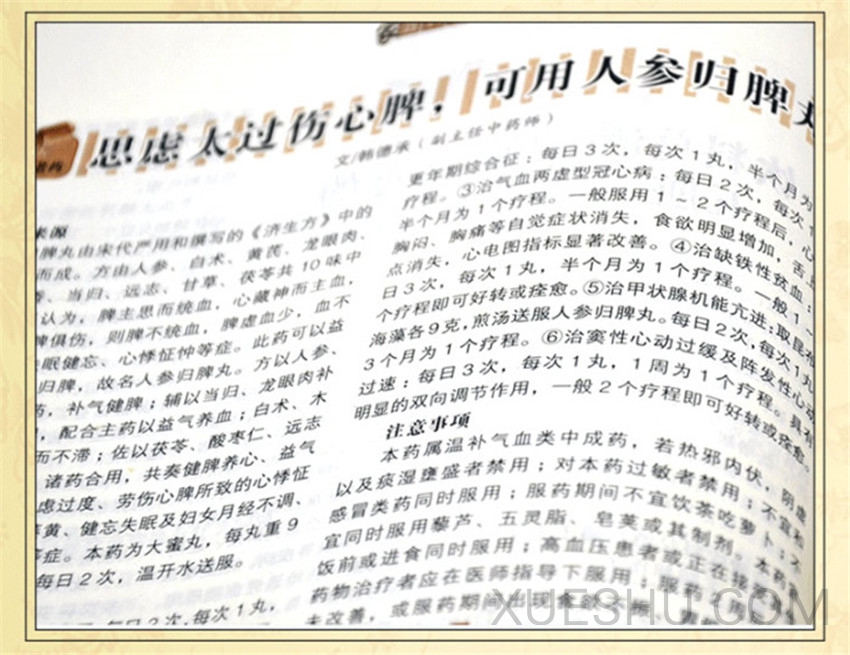 思虑太过伤心脾，可用人参归脾
文/韩德承（副主任中药师）
来源
脾丸由宋代严用和撰写的《济生方》中的
而成。方由人参、白术、黄芪、龙眼肉、
当归、远志、甘草、茯苓共10味中
认为，脾主思而统血，心藏神而主血，
脾俱伤，则脾不统血，脾虚血少，血不
眠健忘、心悸怔忡等症。此药可以益
归脾，故名人参归脾丸。方以人参、
药，补气健脾；辅以当归、龙眼肉补
，配合主药以益气养血；白术、木
而不滞；佐以茯苓、酸枣仁、远志
诸药合用，共奏健脾养心、益气
虑过度、劳伤心脾所致的心悸怔
黄、健忘失眠及妇女月经不调、
等症。本药为大蜜丸，每丸重9
每日2次，温开水送服。
每日2次，每次1丸，
更年期综合征：每日3次，每次1丸，半个月为
疗程。③治气血两虚型冠心病：每日2次，每次1
半个月为1个疗程。一般服用1～2个疗程后，心
胸闷、胸痛等自觉症状消失，食欲明显增加，舌上
点消失，心电图指标显著改善。④治缺铁性贫血：
日3次，每次1丸，半个月为1个疗程。一般1
个疗程即可好转或痊愈。⑤治甲状腺机能亢进：取昆布
海藻各9克，煎汤送服人参归脾丸。每日2次，每次1丸
3个月为1个疗程。⑥治窦性心动过缓及阵发性心动
过速：每日3次，每次1丸，1周为1个疗程。具有
明显的双向调节作用，一般2个疗程即可好转或痊愈。
注意事项
本药属温补气血类中成药，若热邪内伏，阴虚
以及痰湿壅盛者禁用；对本药过敏者禁用；不宜和
感冒类药同时服用；服药期间不宜饮茶吃萝卜；不
宜同时服用藜芦、五灵脂、皂荚或其制剂。本药
饭前或进食同时服用；高血压患者或正在接
药物治疗者应在医师指导下服用；服
未改善，或服药期间出现食欲不
XUESHU.COM